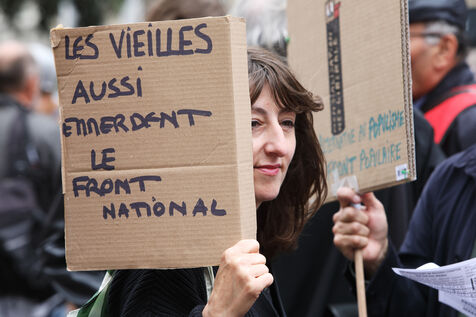 LES VIEILLES
AUSSI
EMMERDENT
LE
FRONT
NATIONAL
POPULISME
FRONT POPULAIRE